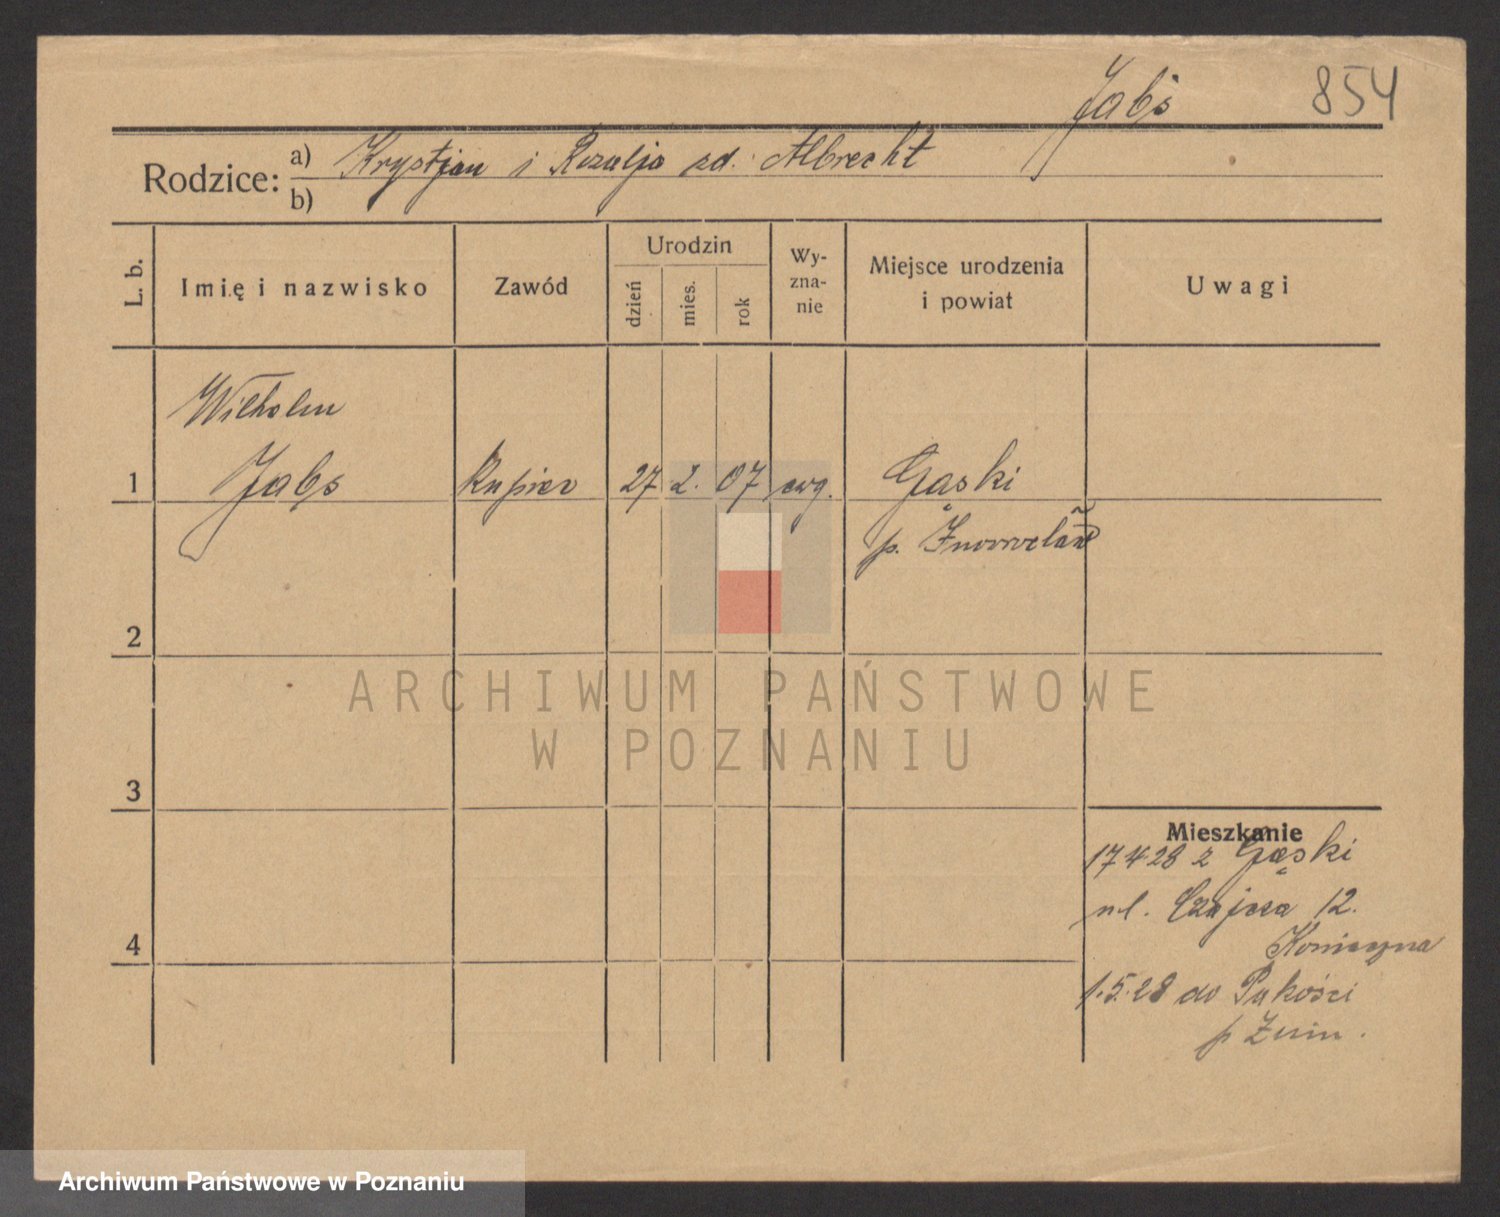 Jabs 854
Rodzice: a) Krystjan i Rozalja zd. Albrecht
b)
L. b. Imię i nazwisko Zawód Urodzin dzień mies. rok Wy-zna-nie Miejsce urodzenia i powiat Uwagi
Wilhelm
1 Jabs kupiec 27 2. 07 ewg. Gąski
p. Inowrocław
2
ARCHIWUM PAŃSTWOWE
W POZNANIU
3
Mieszkanie
17 4 28 z Gąski
ul. Czajcza 12.
4
Konieczna
1.5.28 do Pakości
p Żnin.
Archiwum Państwowe w Poznaniu